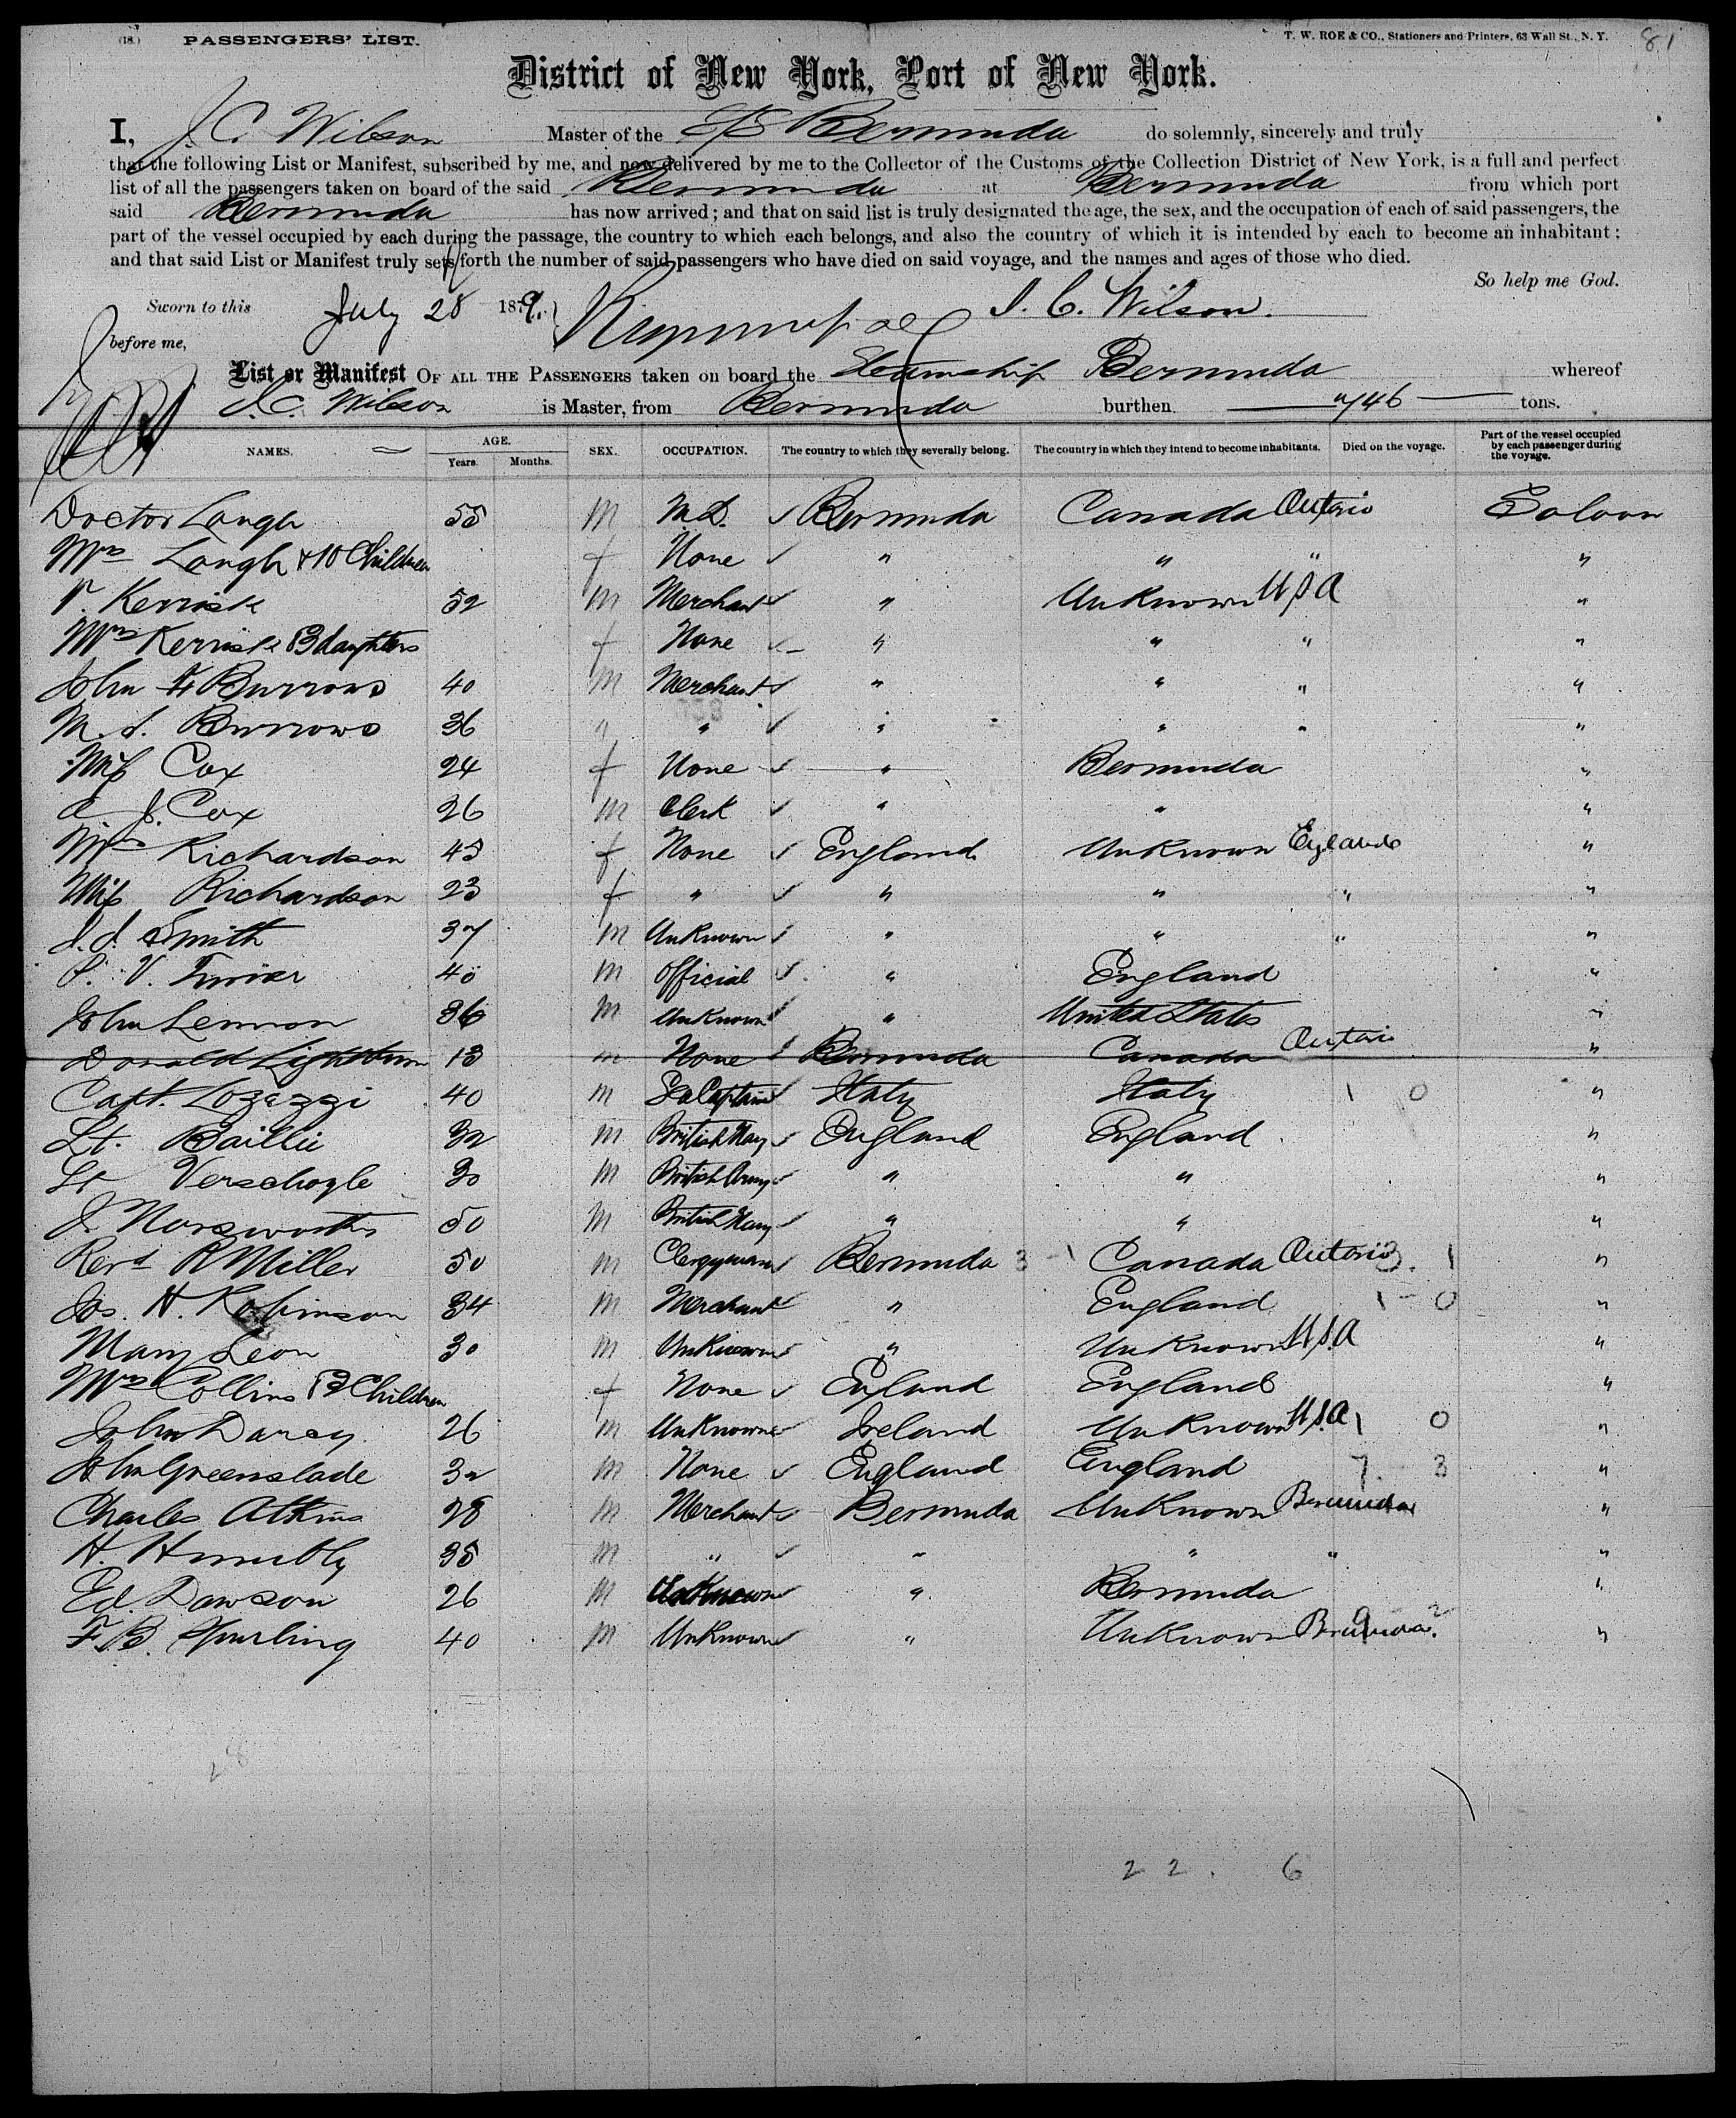 (18.) PASSENGERS' LIST. T. W. ROE & CO., Stationers and Printers, 63 Wall St., N. Y. 81
District of New York, Port of New York.
I, J. C. Wilson Master of the S/S Bermuda do solemnly, sincerely and truly
that the following List or Manifest, subscribed by me, and now delivered by me to the Collector of the Customs of the Collection District of New York, is a full and perfect
list of all the passengers taken on board of the said Bermuda at Bermuda from which port
said Bermuda has now arrived; and that on said list is truly designated the age, the sex, and the occupation of each of said passengers, the
part of the vessel occupied by each during the passage, the country to which each belongs, and also the country of which it is intended by each to become an inhabitant:
and that said List or Manifest truly sets forth the number of said passengers who have died on said voyage, and the names and ages of those who died.
So help me God.
Sworn to this July 28 1879. J. C. Wilson.
before me,
List or Manifest OF ALL THE PASSENGERS taken on board the Steamship Bermuda whereof
J. C. Wilson is Master, from Bermuda burthen 746 tons.
NAMES. AGE. Years. Months. SEX. OCCUPATION. The country to which they severally belong. The country in which they intend to become inhabitants. Died on the voyage. Part of the vessel occupied by each passenger during the voyage.
Doctor Lough 55 M M.D. Bermuda Canada Ontario Saloon
Mrs Lough & 10 Children f None " " " "
Kerrisk 52 M Merchant " Unknown U.S.A "
Mrs Kerrisk 3 daughters f None " " " "
John Burrows 40 M Merchant " " " "
M. S. Burrows 36 " " " " " "
Miss Cox 24 f None " Bermuda "
J. Cox 26 M Clerk " " "
Mrs Richardson 45 f None England Unknown England "
Miss Richardson 23 f " " " " "
Smith 37 M Unknown " " " "
V. 40 M Official " England "
John Lennon 36 M Unknown " United States "
Donald Lightbourn 13 m None Bermuda Canada Ontario "
Capt. Lozazzi 40 m Sea Captain Italy Italy 1 0 "
Lt. Baillie 32 M British Navy England England "
Lt Verschoyle 30 M British Army " " "
J. Norsworthy 50 M British Navy " " "
Revd R Miller 50 m Clergyman Bermuda 3 - 1 Canada Ontario 3. 1 "
Jos. H. Robinson 34 M Merchant " England 1 - 0 "
Mary Leon 30 M Unknown " Unknown U.S.A "
Mrs Collins 2 Children f None England England "
John Darcy 26 m Unknown Ireland Unknown U.S.A 1 0 "
John Greenslade 32 M None England England 7. 3 "
Charles Atkins 28 M Merchant Bermuda Unknown Bermuda "
H. 35 M " " " " "
Ed. Dawson 26 M Unknown " Bermuda "
F. B. Spurling 40 M Unknown " Unknown Bermuda? "
28
22. 6